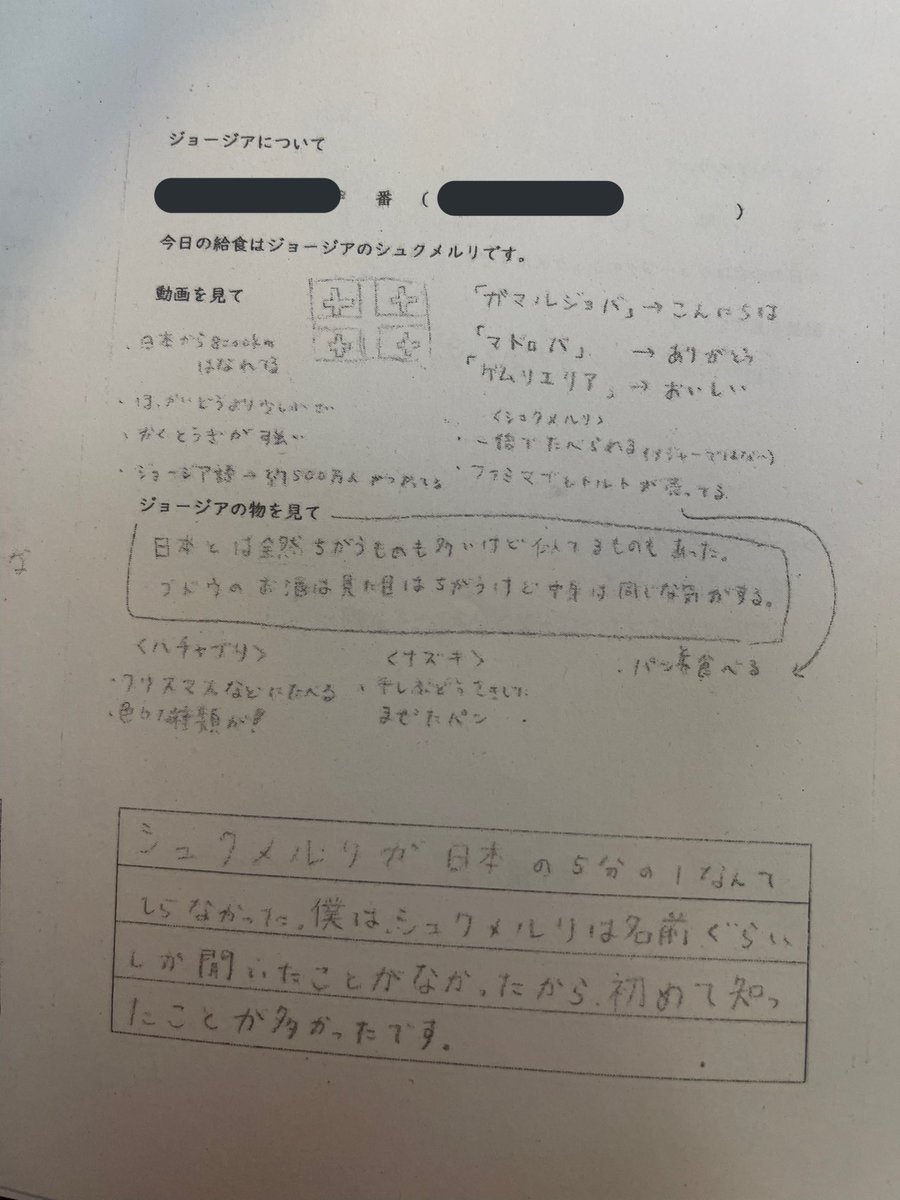 ジョージアについて
番 ( )
今日の給食はジョージアのシュクメルリです。
動画を見て
・日本から8200km
はなれてる
・ほっかいどうより少し小さい
・かくとうぎが強い
・ジョージア語→約500万人がつかってる
「ガマルジョバ」→こんにちは
「マドロバ」 →ありがとう
「ゲムリエリア」→おいしい
〈シュクメルリ〉
・一般でたべられる(メジャーではな〜)
・ファミマでレトルトが売ってる
ジョージアの物を見て
日本とは全然ちがうものも多いけど似てるものもあった。
ブドウのお酒は見た目はちがうけど中身は同じな気がする。
〈ハチャプリ〉
・クリスマスなどにたべる
・色んな種類が!
〈ナズキ〉
・干しぶどう
まぜたパン
・パン 食べる
シュクメルリが日本の5分の1なんて
しらなかった。僕は、シュクメルリは名前ぐらい
しか聞いたことがなかったから、初めて知っ
たことが多かったです。
な